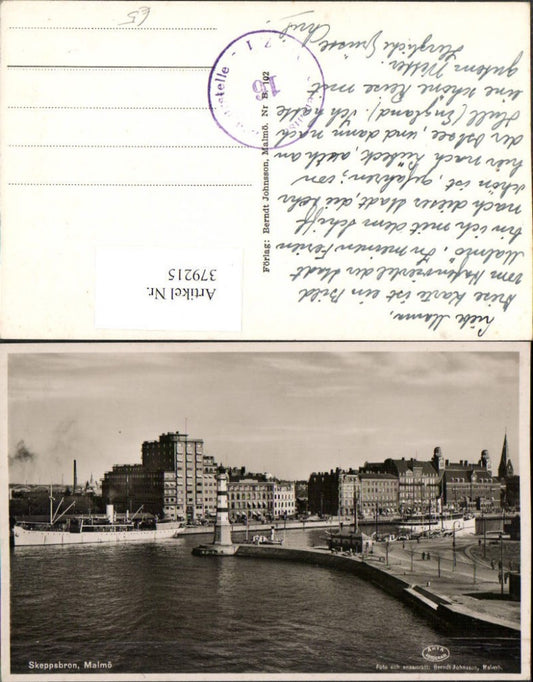 Liebe Mama,
diese Karte ist ein Bild
vom Hafenviertel der Stadt
Malmö. In meinen Ferien
bin ich mit dem Schiff
nach dieser Stadt, die sehr
schön ist, gefahren; von
hier nach Lübeck, auch an
der Ostsee, und dann nach
Hull (England). Ich hatte
eine schöne Reise mit
gutem Wetter.
Herzliche Grüsse
Förlag: Berndt Johnsson, Malmö. Nr B. 102
Artikel Nr.
379215
Skeppsbron, Malmö
Foto och ensamrätt: Berndt Johnsson, Malmö.